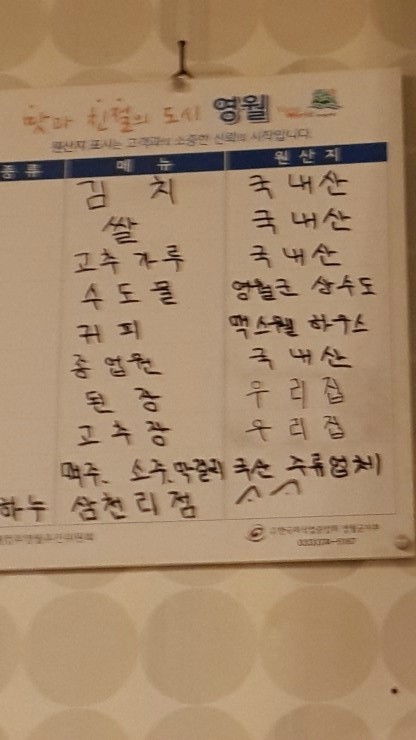 맛과 친절의 도시 영월
원산지 표시는 고객과의 소중한 신뢰의 시작입니다.
품류 메뉴 원산지
김치 국내산
쌀 국내산
고추가루 국내산
수도물 영월군 상수도
커피 맥스웰 하우스
종업원 국내산
된장 우리집
고추장 우리집
맥주, 소주, 막걸리 국산 주류업체
하누 삼천리점 ^^
영월군지부